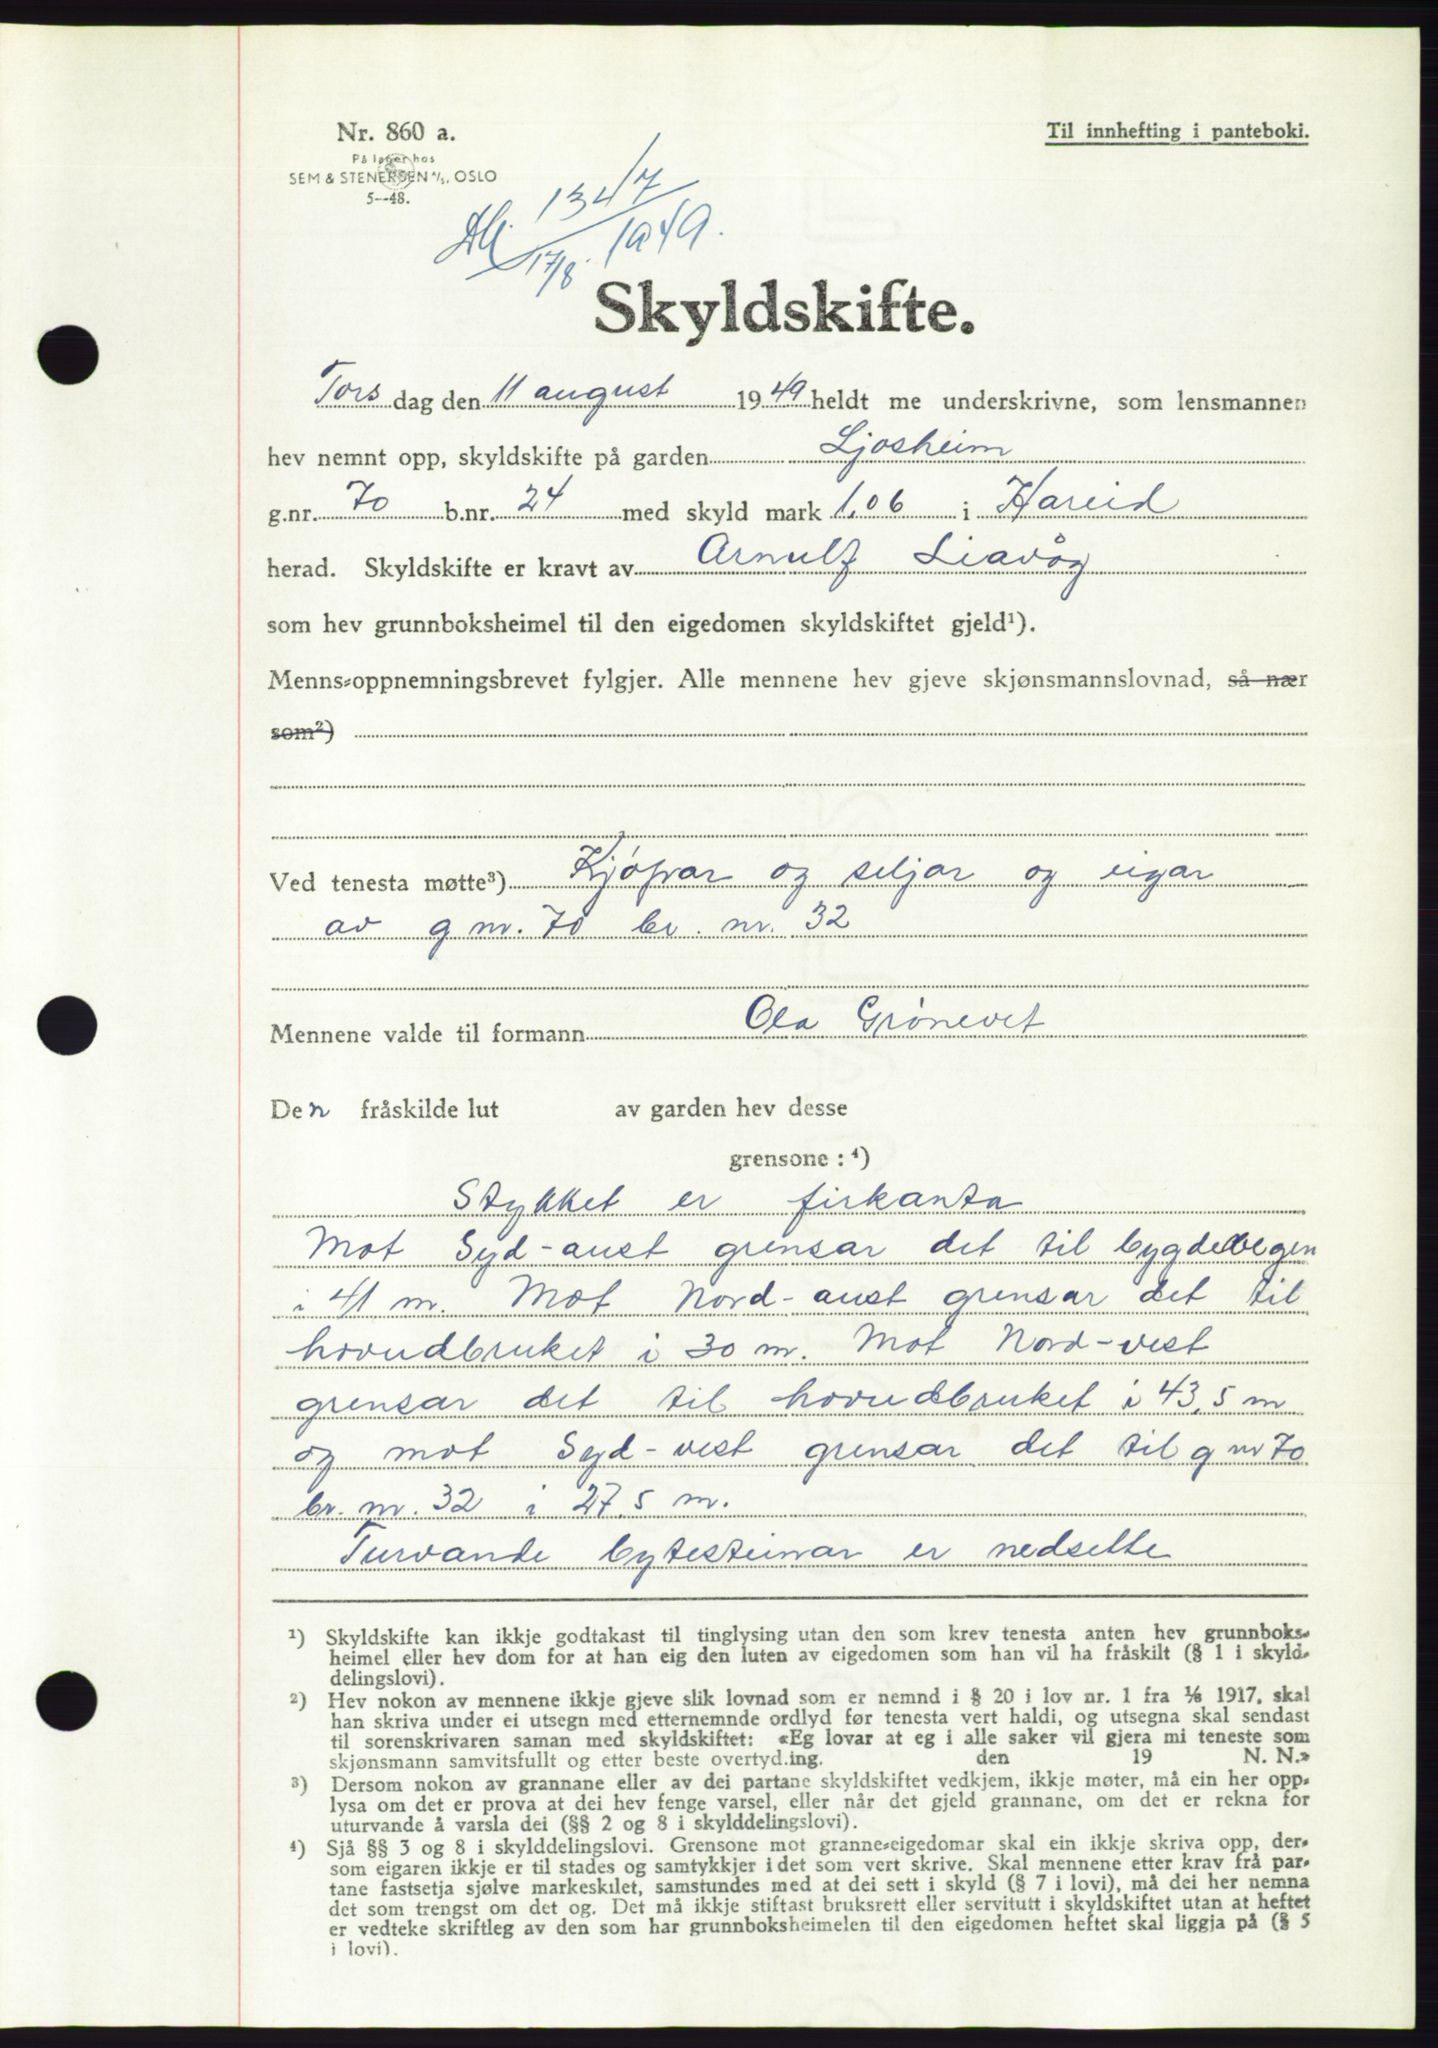 Nr. 860 a.
Til innhefting i panteboki.
På lager hos
SEM & STENERSEN A/S, OSLO
5--48.
1347
17/8. 1949.
Skyldskifte.
Torsdag den 11 august 1949 heldt me underskrivne, som lensmannen
hev nemnt opp, skyldskifte på garden Ljosheim
g.nr. 70 b.nr. 24 med skyld mark 1,06 i Hareid
herad. Skyldskifte er kravt av Arnulf Liavåg
som hev grunnboksheimel til den eigedomen skyldskiftet gjeld¹).
Menns-oppnemningsbrevet fylgjer. Alle mennene hev gjeve skjønsmannslovnad, så nær
som²)
Ved tenesta møtte³) Kjøpar og seljar og eigar
av g nr. 70 br. nr. 32
Mennene valde til formann Ola Grønevet
Den fråskilde lut av garden hev desse
grensone : ⁴)
Stykket er firkanta
Mot Syd-aust grensar det til bygdevegen
i 41 m. Mot Nord-aust grensar det til
hovudbruket i 30 m. Mot Nord-vest
grensar det til hovudbruket i 43,5 m
og mot Syd-vest grensar det til g nr 70
br. nr. 32 i 27,5 m.
Turvande bytesteinar er nedsette
¹) Skyldskifte kan ikkje godtakast til tinglysing utan den som krev tenesta anten hev grunnboks-
heimel eller hev dom for at han eig den luten av eigedomen som han vil ha fråskilt (§ 1 i skyld-
delingslovi).
²) Hev nokon av mennene ikkje gjeve slik lovnad som er nemnd i § 20 i lov nr. 1 fra 1/6 1917, skal
han skriva under ei utsegn med etternemnde ordlyd før tenesta vert haldi, og utsegna skal sendast
til sorenskrivaren saman med skyldskiftet: «Eg lovar at eg i alle saker vil gjera mi teneste som
skjønsmann samvitsfullt og etter beste overtyd.ing. den 19 N. N.»
³) Dersom nokon av grannane eller av dei partane skyldskiftet vedkjem, ikkje møter, må ein her opp-
lysa om det er prova at dei hev fenge varsel, eller når det gjeld grannane, om det er rekna for
uturvande å varsla dei (§§ 2 og 8 i skylddelingslovi).
⁴) Sjå §§ 3 og 8 i skylddelingslovi. Grensone mot granne-eigedomar skal ein ikkje skriva opp, der-
som eigaren ikkje er til stades og samtykkjer i det som vert skrive. Skal mennene etter krav frå par-
tane fastsetja sjølve markeskilet, samstundes med at dei sett i skyld (§ 7 i lovi), må dei her nemna
det som trengst om det og. Det må ikkje stiftast bruksrett eller servitutt i skyldskiftet utan at heftet
er vedteke skriftleg av den som har grunnboksheimelen til den eigedomen heftet skal liggja på (§ 5
i lovi).